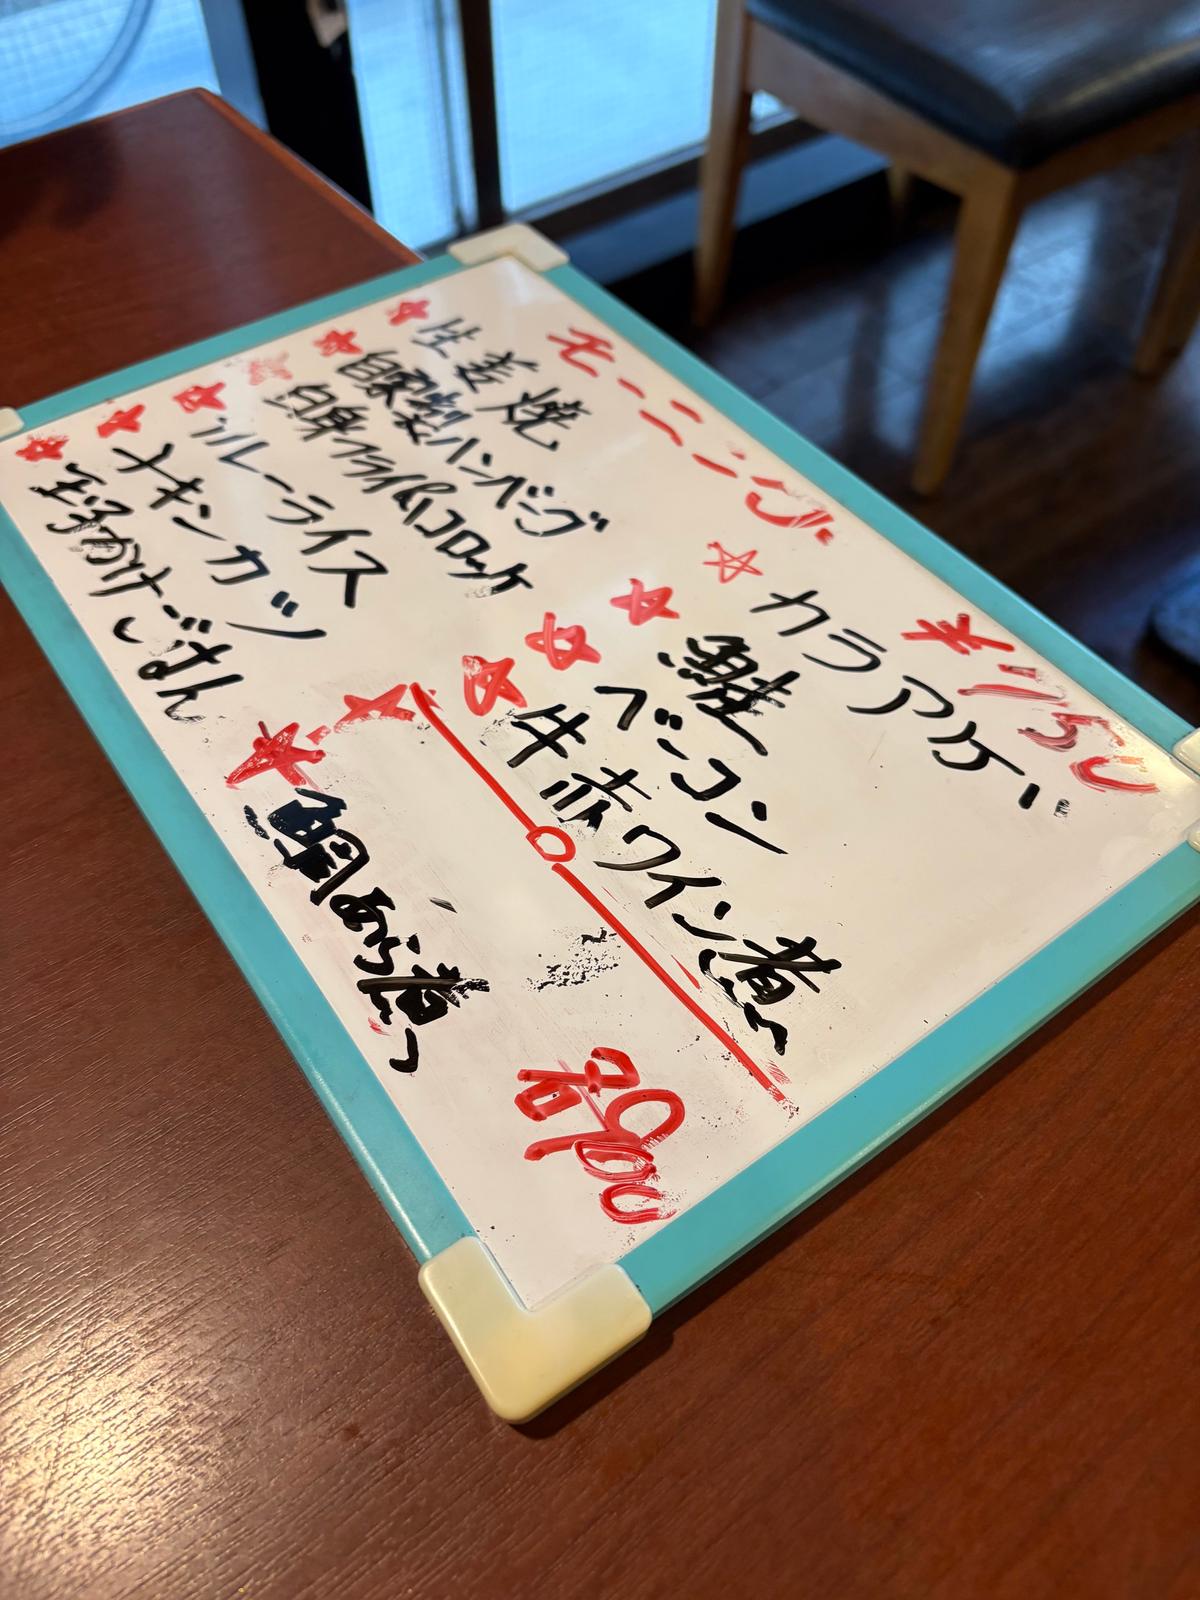 モーニング
¥750
☆生姜焼
☆自家製ハンバーグ
白身フライ&コロッケ
☆カレーライス
☆チキンカツ
☆玉子かけごはん
☆カラアゲ
☆鮭
☆ベーコン
☆牛赤ワイン煮
☆鯛あら煮